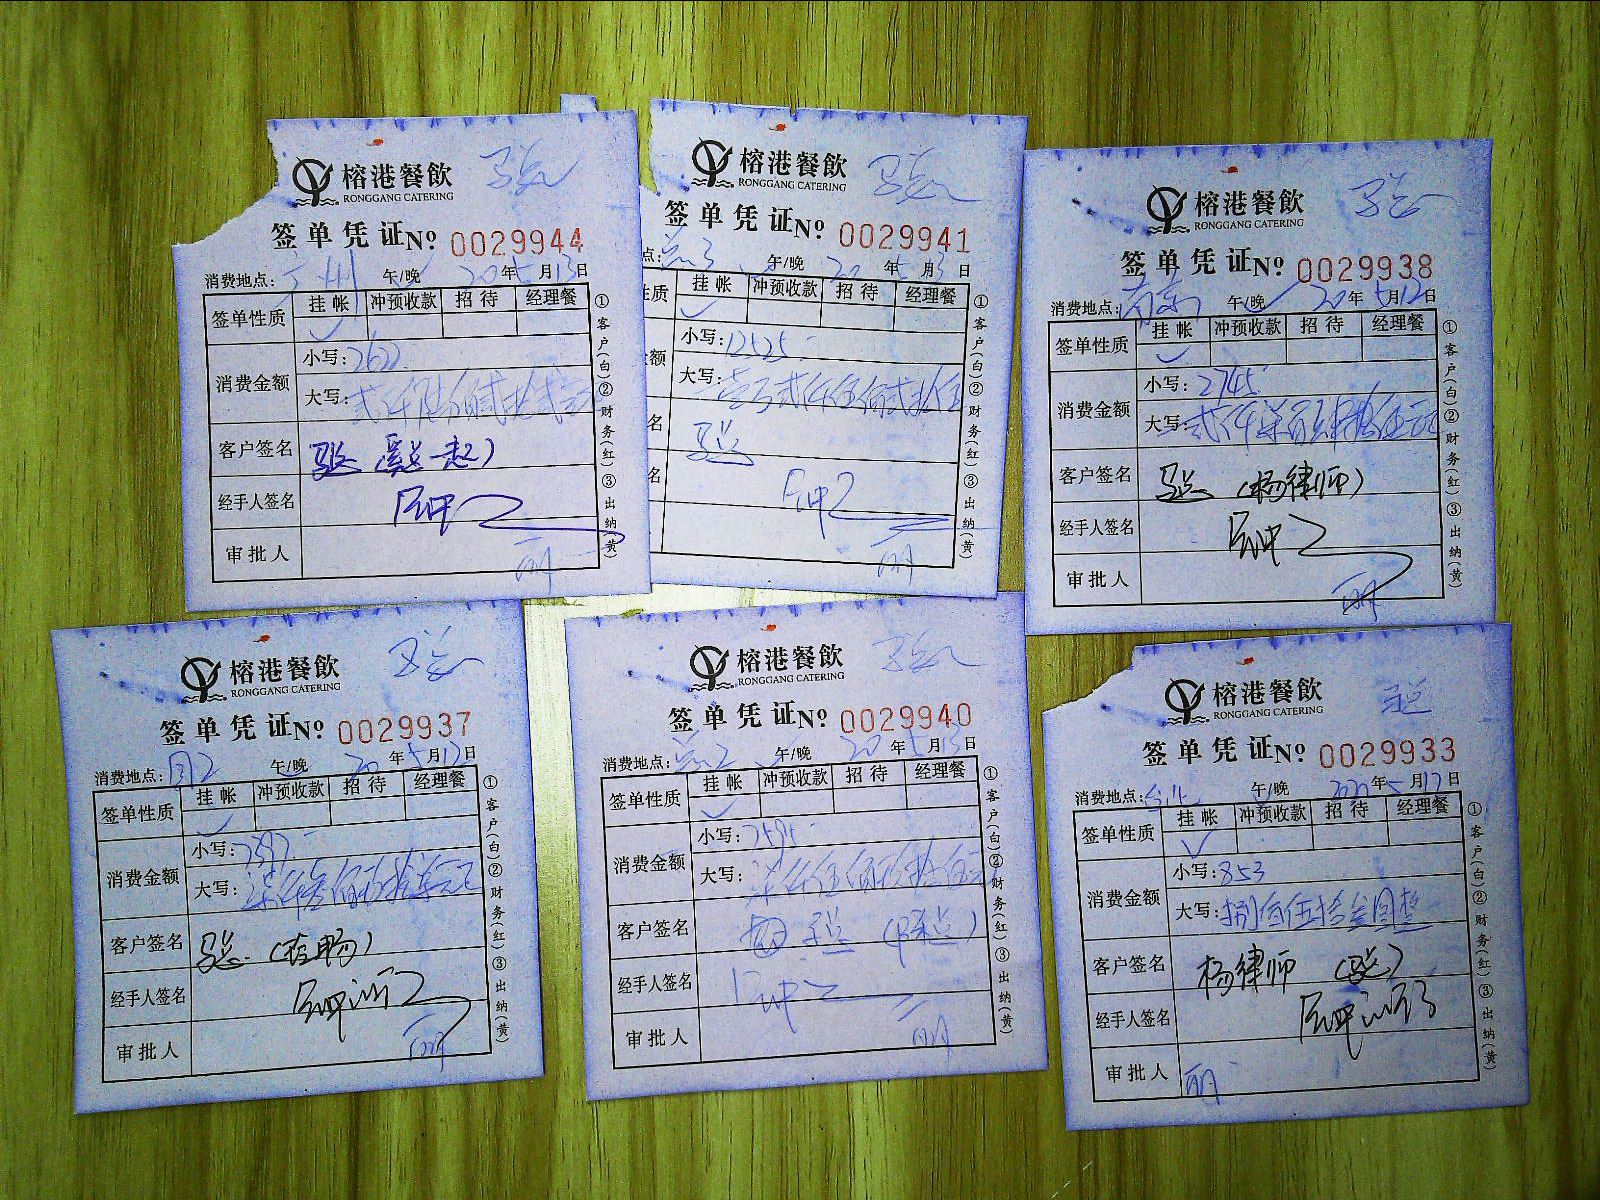 榕港餐飲
RONGGANG CATERING
签单凭证 Nº 0029944
消费地点: 广州 午/晚 20年5月13日
签单性质 挂帐 冲预收款 招待 经理餐
消费金额 小写: 2622
大写: 贰仟陆佰贰拾贰元
客户签名
经手人签名
审批人
①客户(白)②财务(红)③出纳(黄)
榕港餐飲
RONGGANG CATERING
签单凭证 Nº 0029941
点: 午/晚 20年5月13日
性质 挂帐 冲预收款 招待 经理餐
额 小写: 12525
大写: 壹万贰仟伍佰贰拾伍
名
名
①客户(白)②财务(红)③出纳(黄)
榕港餐飲
RONGGANG CATERING
签单凭证 Nº 0029938
消费地点: 南京 午/晚 20年5月12日
签单性质 挂帐 冲预收款 招待 经理餐
消费金额 小写: 2745
大写: 贰仟柒百肆拾伍元
客户签名 (杨律师)
经手人签名
审批人
①客户(白)②财务(红)③出纳(黄)
榕港餐飲
RONGGANG CATERING
签单凭证 Nº 0029937
消费地点: 午/晚 20年5月12日
签单性质 挂帐 冲预收款 招待 经理餐
消费金额 小写:
大写:
客户签名
经手人签名
审批人
①客户(白)②财务(红)③出纳(黄)
榕港餐飲
RONGGANG CATERING
签单凭证 Nº 0029940
消费地点: 午/晚 20年5月13日
签单性质 挂帐 冲预收款 招待 经理餐
消费金额 小写: 7595
大写: 柒仟伍佰玖拾伍元
客户签名
经手人签名
审批人
①客户(白)②财务(红)③出纳(黄)
榕港餐飲
RONGGANG CATERING
签单凭证 Nº 0029933
消费地点: 台北 午/晚 2020年5月12日
签单性质 挂帐 冲预收款 招待 经理餐
消费金额 小写: 853
大写: 捌佰伍拾叁圆整
客户签名 杨律师
经手人签名
审批人
①客户(白)②财务(红)③出纳(黄)